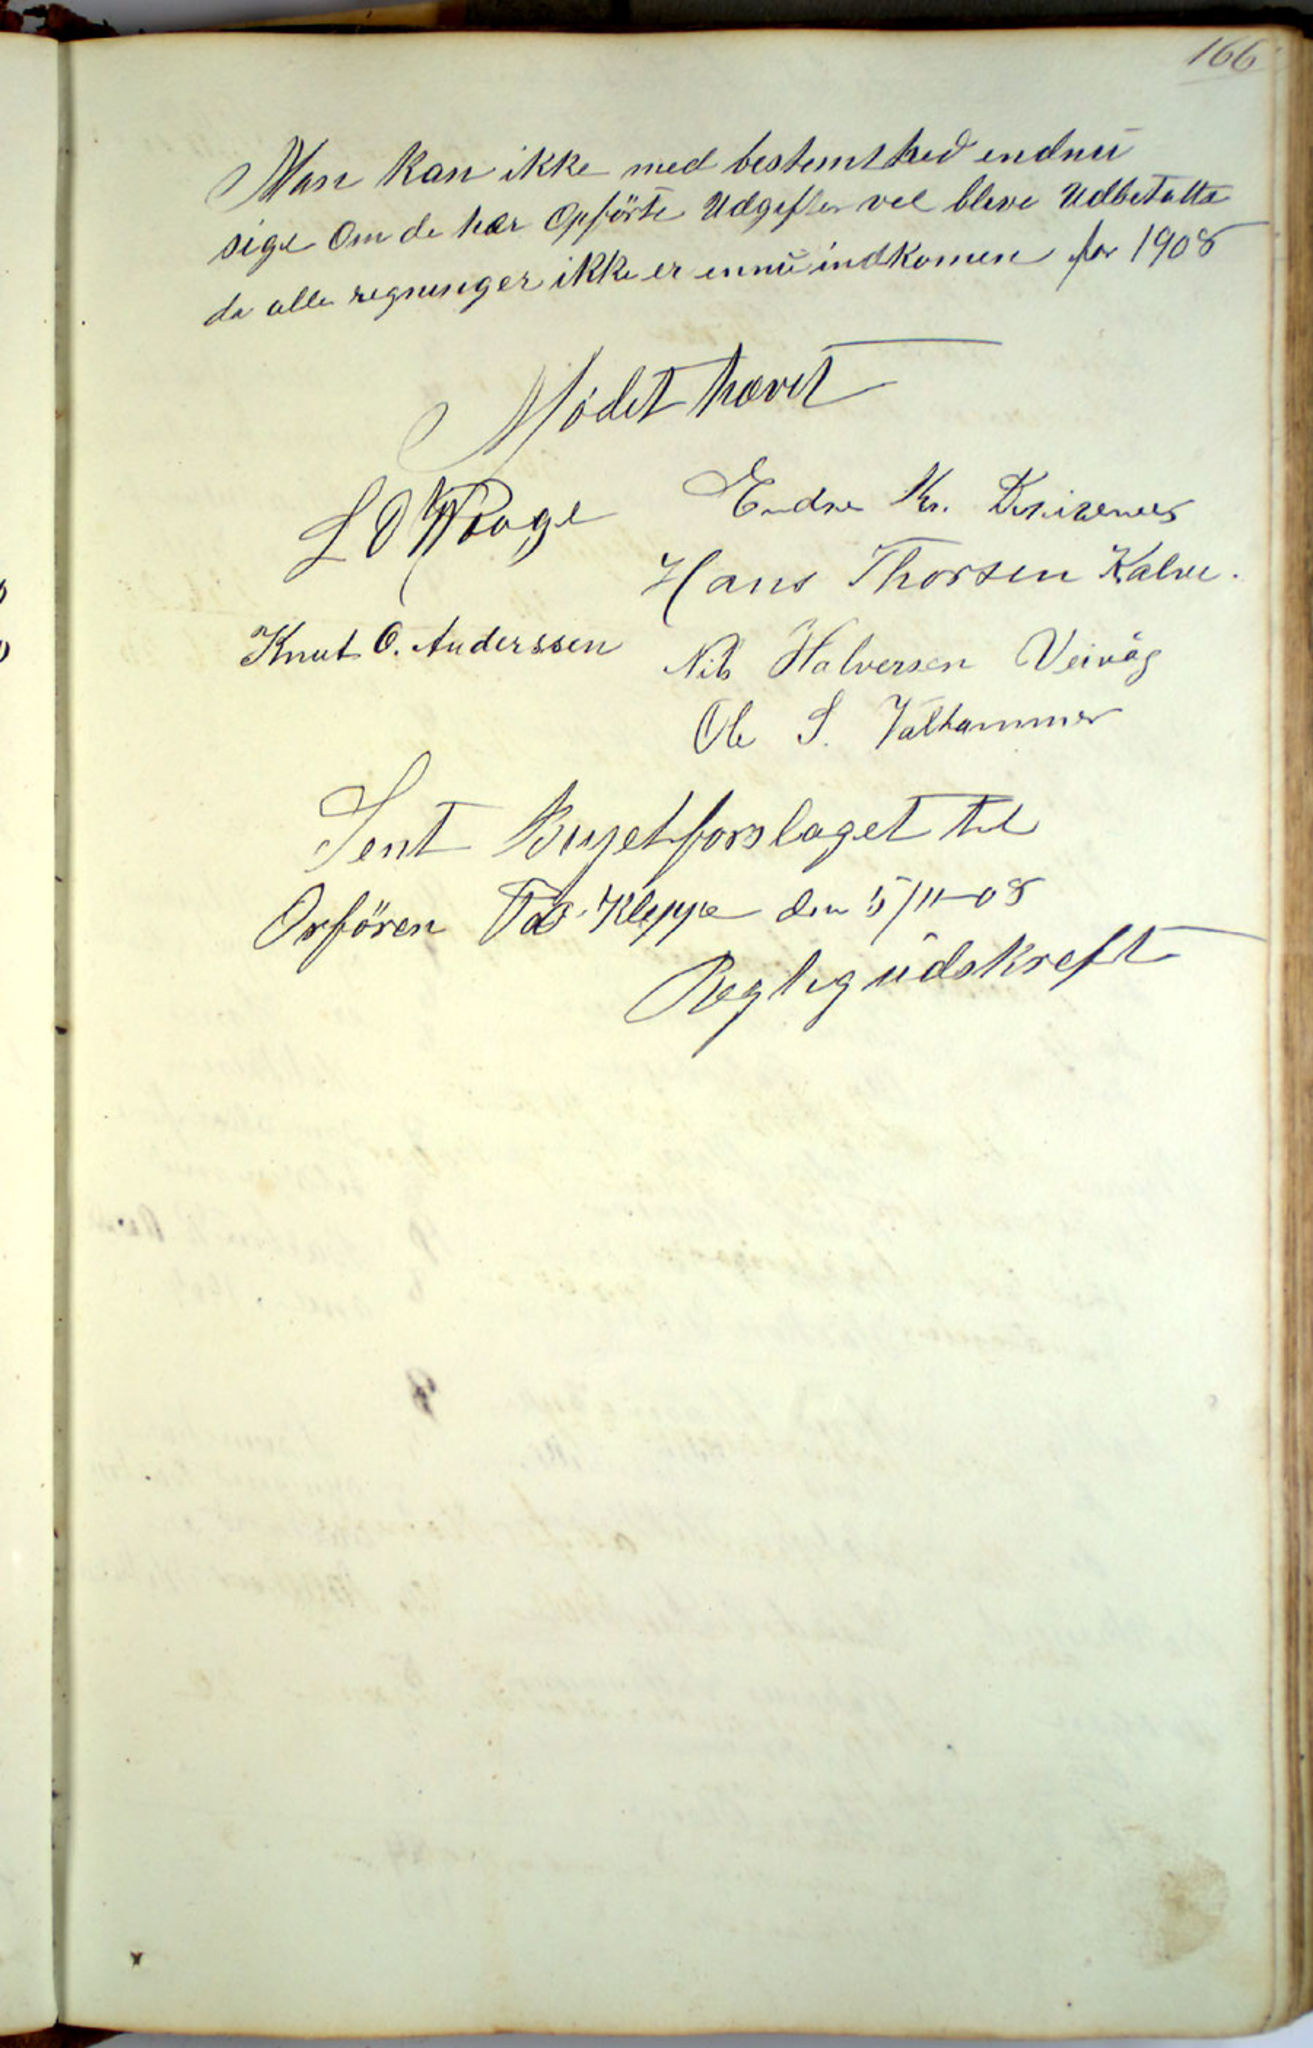 166
Man kan ikke med bestemthed endnu
sige Om de her Opförte Udgifter vel bleve Udbetalte
da alle regninger ikke er ennu indkomen for 1908
Mödet hævet
L O Waage
Endre Kr.
Hans Thorsen Kalve.
Knut O. Anderssen
Nils Halversen Veivåg
Ole S. Valhammer
Sent Bugetforslaget til
Orfören Kleppe den 5/11-08
Regtig údskreft